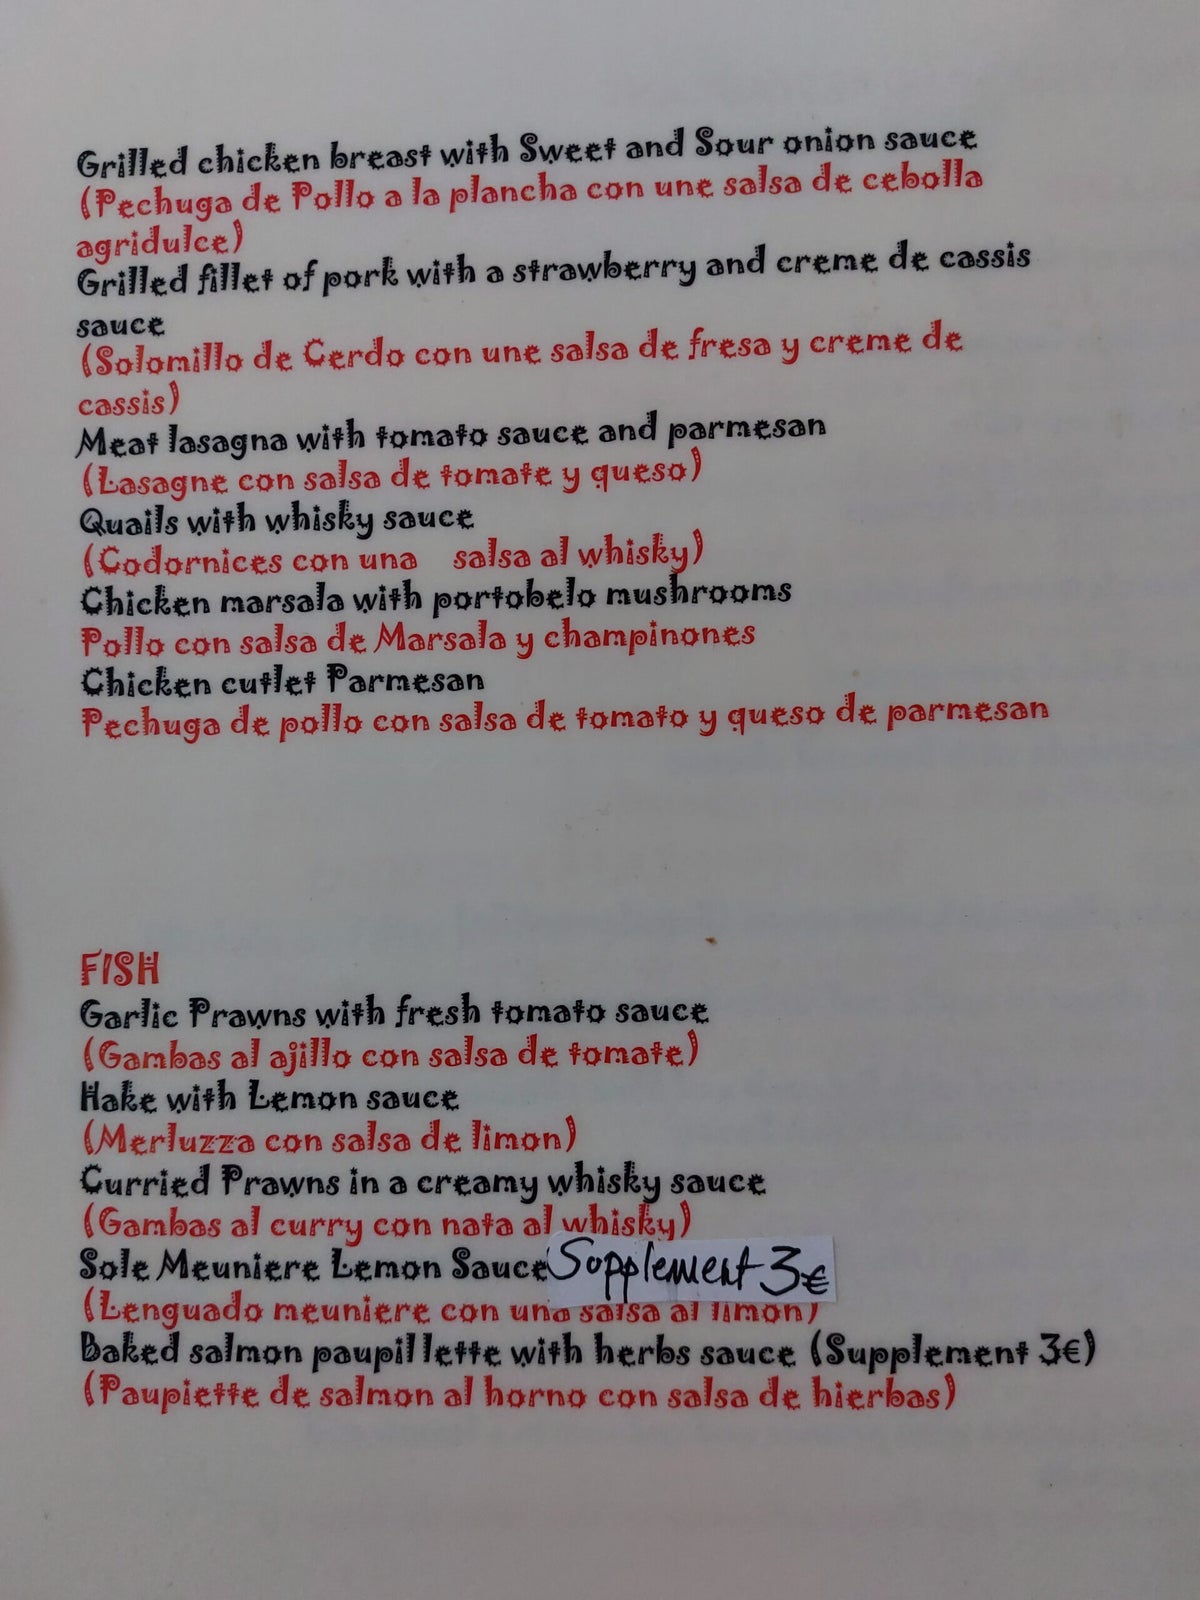 Grilled chicken breast with Sweet and Sour onion sauce
(Pechuga de Pollo a la plancha con une salsa de cebolla
agridulce)
Grilled fillet of pork with a strawberry and creme de cassis
sauce
(Solomillo de Cerdo con une salsa de fresa y creme de
cassis)
Meat lasagna with tomato sauce and parmesan
(Lasagne con salsa de tomate y queso)
Quails with whisky sauce
(Codornices con una salsa al whisky)
Chicken marsala with portobelo mushrooms
Pollo con salsa de Marsala y champinones
Chicken cutlet Parmesan
Pechuga de pollo con salsa de tomato y queso de parmesan
FISH
Garlic Prawns with fresh tomato sauce
(Gambas al ajillo con salsa de tomate)
Hake with Lemon sauce
(Merluzza con salsa de limon)
Curried Prawns in a creamy whisky sauce
(Gambas al curry con nata al whisky)
Sole Meuniere Lemon Sauce Supplement 3€
(Lenguado meuniere con una salsa al limon)
Baked salmon paupillette with herbs sauce (Supplement 3€)
(Paupiette de salmon al horno con salsa de hierbas)